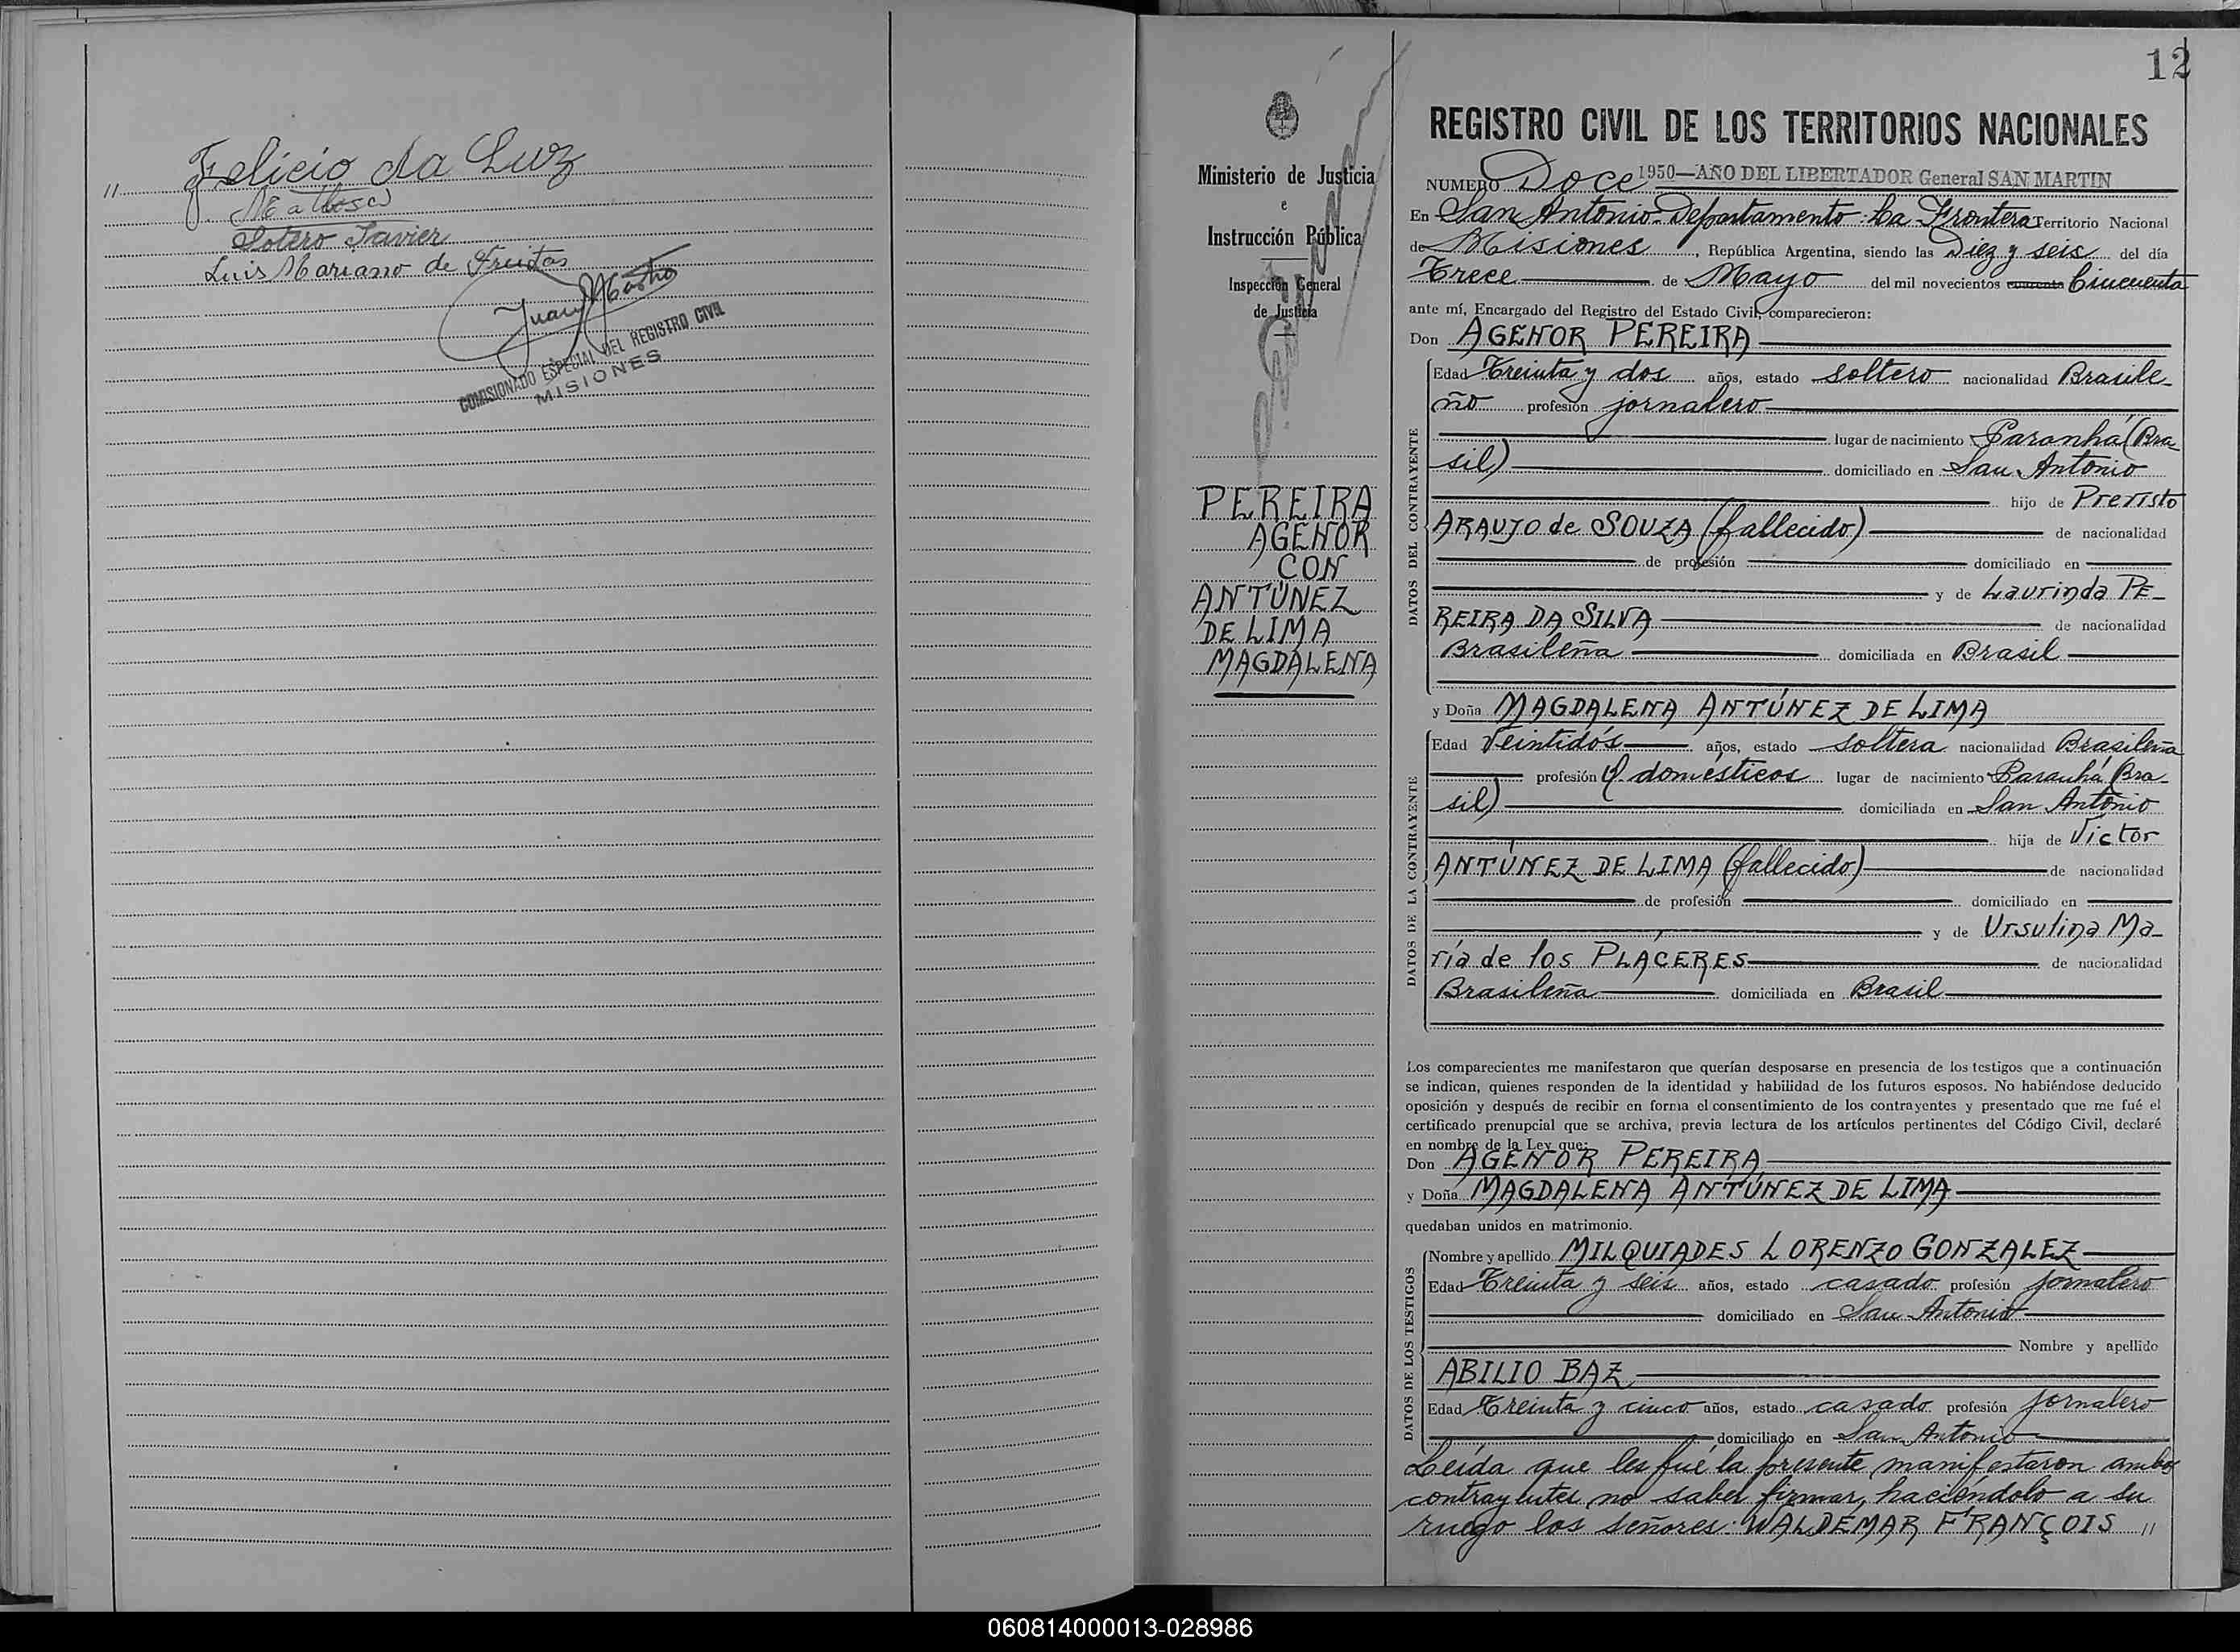 " Felicio da Luz
Sotero Javier
Luis Mariano de Freitas
Juan
COMISIONADO ESPECIAL DEL REGISTRO CIVIL
MISIONES
12
Ministerio de Justicia
e
Instrucción Pública
Inspección General
de Justicia
PEREIRA
AGENOR
CON
ANTÚNEZ
DE LIMA
MAGDALENA
REGISTRO CIVIL DE LOS TERRITORIOS NACIONALES
1950—AÑO DEL LIBERTADOR General SAN MARTIN
NUMERO Doce
En San Antonio-Departamento: La Frontera Territorio Nacional
de Misiones, República Argentina, siendo las Diez y seis del día
Trece de Mayo del mil novecientos cuarenta Cincuenta
ante mí, Encargado del Registro del Estado Civil, comparecieron:
Don AGENOR PEREIRA
DATOS DEL CONTRAYENTE
Edad Treinta y dos años, estado soltero nacionalidad Brasile-
ño profesión jornalero
lugar de nacimiento Paranhá (Bra-
sil) domiciliado en San Antonio
hijo de Previsto
ARAUJO de SOUZA (fallecido) de nacionalidad
de profesión domiciliado en
y de Laurinda PE-
REIRA DA SILVA de nacionalidad
Brasileña domiciliada en Brasil
y Doña MAGDALENA ANTÚNEZ DE LIMA
DATOS DE LA CONTRAYENTE
Edad Veintidós años, estado soltera nacionalidad Brasileña
profesión Q. domésticos lugar de nacimiento Paranhá (Bra-
sil) domiciliada en San Antonio
hija de Victor
ANTÚNEZ DE LIMA (fallecido) de nacionalidad
de profesión domiciliado en
y de Ursulina Ma-
ría de los PLACERES de nacionalidad
Brasileña domiciliada en Brasil
Los comparecientes me manifestaron que querían desposarse en presencia de los testigos que a continuación
se indican, quienes responden de la identidad y habilidad de los futuros esposos. No habiéndose deducido
oposición y después de recibir en forma el consentimiento de los contrayentes y presentado que me fué el
certificado prenupcial que se archiva, previa lectura de los artículos pertinentes del Código Civil, declaré
en nombre de la Ley que:
Don AGENOR PEREIRA
y Doña MAGDALENA ANTÚNEZ DE LIMA
quedaban unidos en matrimonio.
DATOS DE LOS TESTIGOS
Nombre y apellido MILQUIADES LORENZO GONZALEZ
Edad Treinta y seis años, estado casado profesión jornalero
domiciliado en San Antonio
Nombre y apellido
ABILIO BAZ
Edad Treinta y cinco años, estado casado profesión jornalero
domiciliado en San Antonio
Leída que les fué la presente manifestaron ambos
contrayentes no saber firmar, haciendolo a su
ruego los señores: WALDEMAR FRANÇOIS "
060814000013-028986